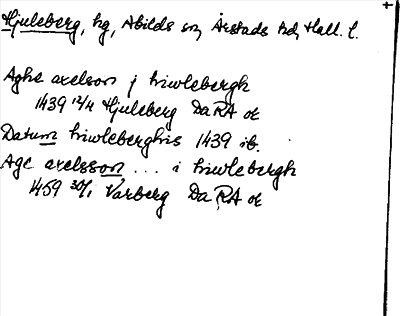 Hjuleberg, hg, Abilds sn, Årstads hd, Hall. l.
Aghe axelson j hiwlebergh
1439 12/4 Hjuleberg DaRA or
Datum hiwleberghis 1439 ib.
Age axelsson ... i hiwlebergh
1459 30/1 Varberg DaRA or